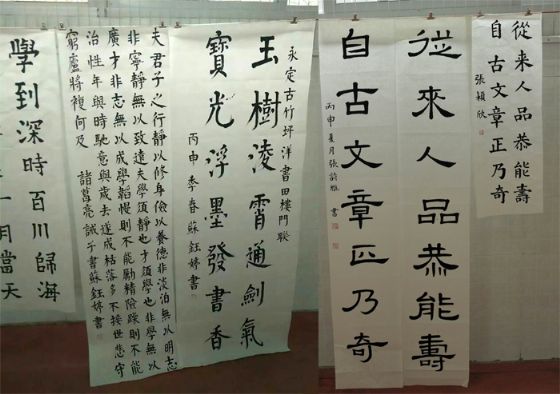 從來人品恭能壽
自古文章正乃奇
張穎欣
從來人品恭能壽
自古文章正乃奇
丙申夏月張詩雅 書
永定古竹坪洋書田樓門聯
玉樹凌霄通劍氣
寶光浮墨發書香
丙申季春蘇鈺婷書
夫君子之行靜以修身儉以養德非淡泊無以明志
非寧靜無以致遠夫學須靜也才須學也非學無以
廣才非志無以成學韜慢則不能勵精險躁則不能
治性年與時馳意與歲去遂成枯落多不接世悲守
窮廬將複何及 諸葛亮 誡子書蘇鈺婷書
學到深時百川歸海
月當天